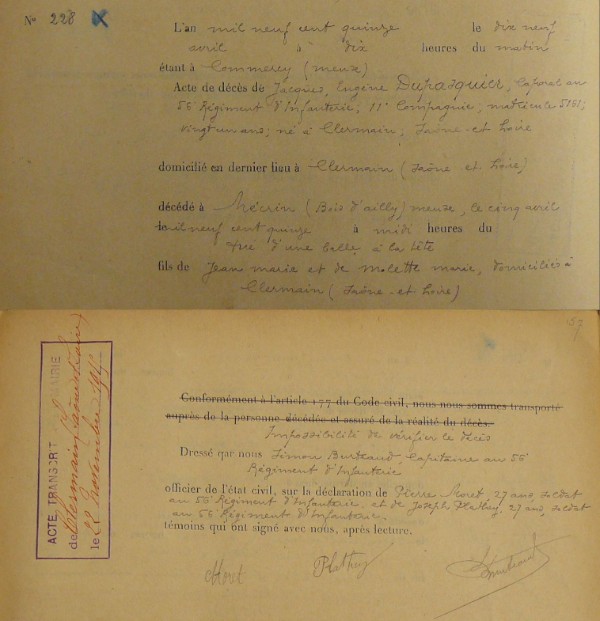 N° 228 X
L'an mil neuf cent quinze le dix neuf
avril à dix heures du matin
étant à Commercy (Meuse)
Acte de décès de Jacques, Eugène Dupasquier, Caporal au
56 Régiment d'Infanterie, 11e Compagnie, matricule 5151,
vingt un ans, né à Clermain, Saône-et-Loire
domicilié en dernier lieu à Clermain (Saône et Loire)
décédé à Mécrin (Bois d'ailly) Meuse, le cinq avril
mil neuf cent quinze à midi heures du
d'une balle à la tête
fils de Jean marie et de Molette marie, domiciliés à
Clermain (Saône-et Loire)
157
Conformément à l'article 77 du Code civil, nous nous sommes transporté
auprès de la personne décédée et assuré de la réalité du décès.
Impossibilité de vérifier le décès
Dressé par nous Simon Burteaud, Capitaine au 56
Régiment d'Infanterie
officier de l'état civil, sur la déclaration de Pierre Moret, 27 ans, soldat
au 56 Régiment d'Infanterie, et de Joseph Plathey, 27 ans, soldat
au 56 Régiment d'Infanterie.
témoins qui ont signé avec nous, après lecture.
Moret Plathey
ACTE TRANSCRIT MAIRIE
de Clermain
le 22 novembre 1915